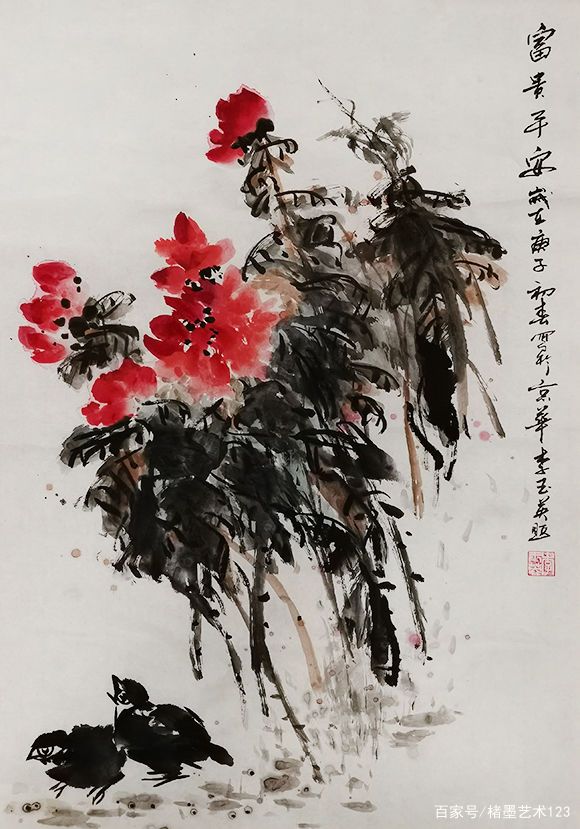 富贵平安 岁在庚子初春写于京华 李玉英题
百家号/楮墨艺术123